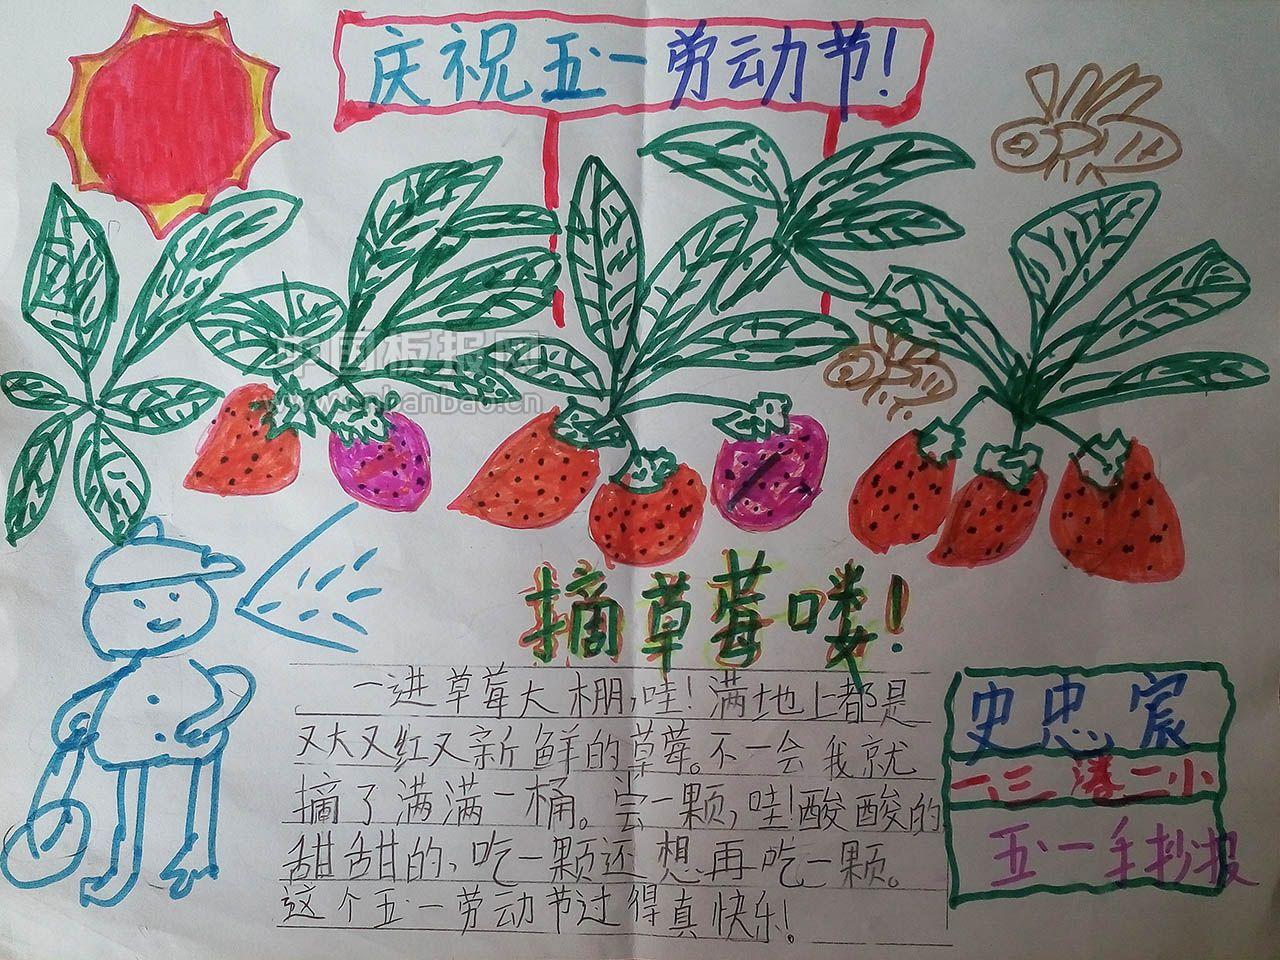 庆祝五·一劳动节!
中国板报网
www.cnbanbao.cn
摘草莓喽!
一进草莓大棚,哇!满地上都是
又大又红又新鲜的草莓。不一会我就
摘了满满一桶。尝一颗,哇!酸酸的
甜甜的,吃一颗还想再吃一颗。
这个五·一劳动节过得真快乐!
史忠宸
一、三 潘二小
五·一手抄报